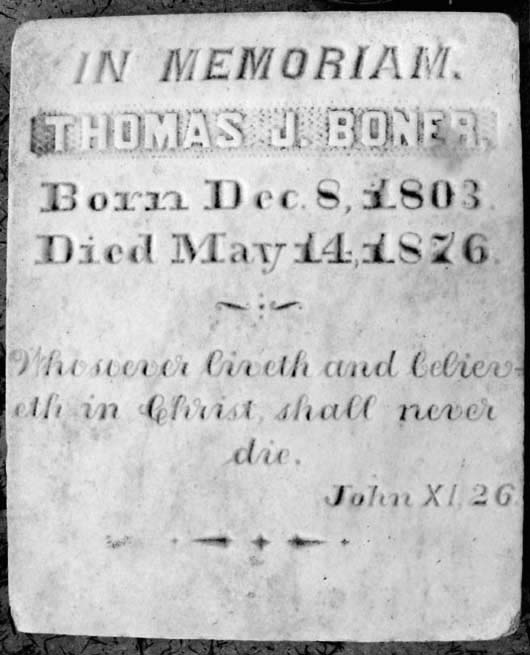 IN MEMORIAM.
THOMAS J. BONER.
Born Dec. 8, 1803.
Died May 14, 1876.
Whosoever liveth and believ-
eth in Christ, shall never
die.
John XI, 26.